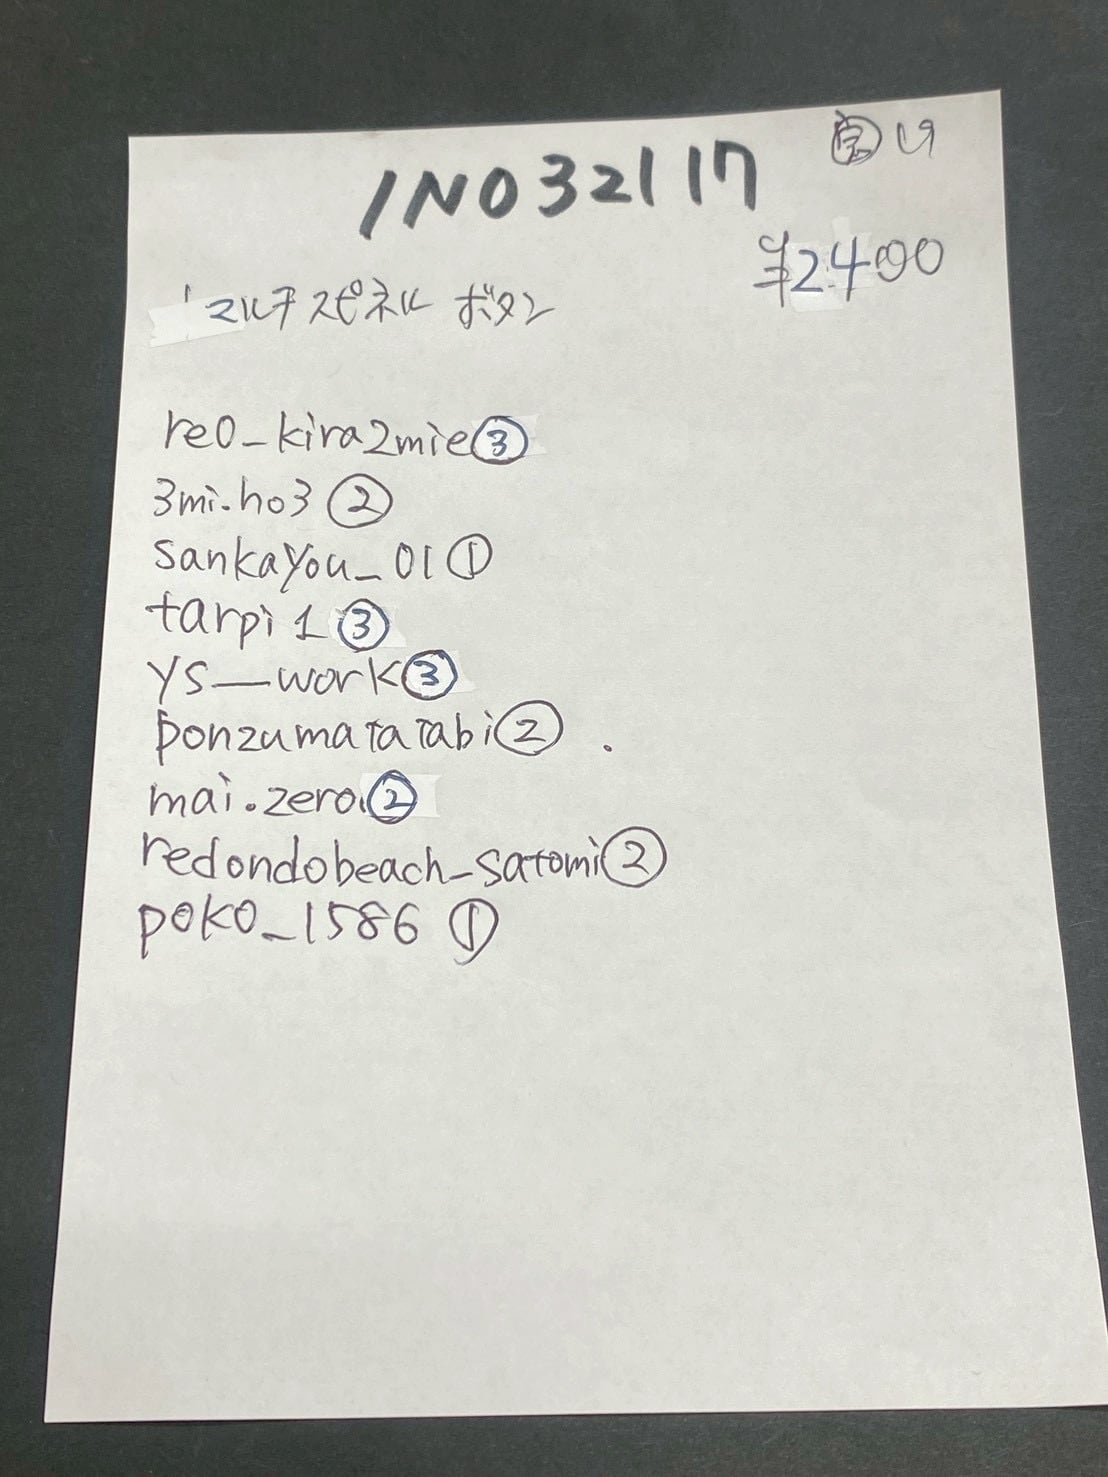 1NO32117
¥2400
マルチスピネル ボタン
re0_kira2mie③
3mi.ho3②
sankayou_01①
tarpi1③
ys__work③
ponzumatatabi②
mai.zero②
redondobeach_satomi②
poko_1586①